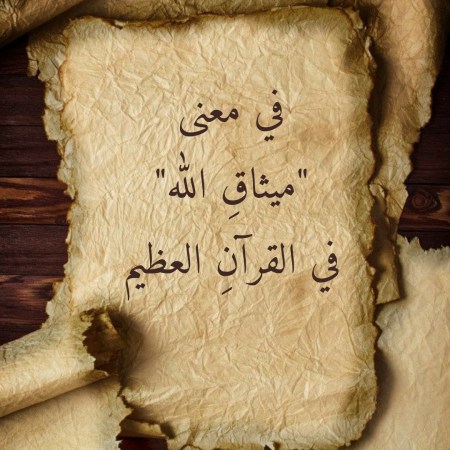 في معنى
"ميثاقِ الله"
في القرآنِ العظيم